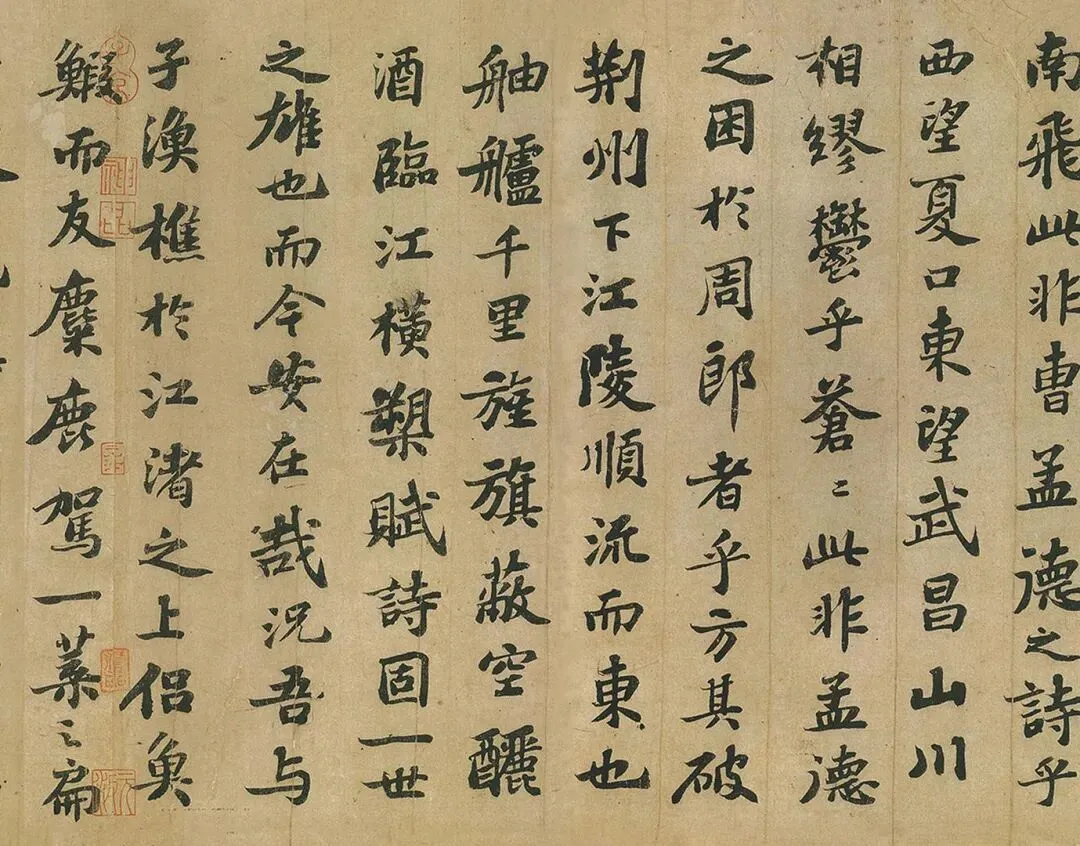 南飛此非曹孟德之詩乎
西望夏口東望武昌山川
相繆鬱乎蒼〻此非孟德
之困於周郎者乎方其破
荆州下江陵順流而東也
舳艫千里旌旗蔽空釃
酒臨江橫槊賦詩固一世
之雄也而今安在哉况吾与
子漁樵於江渚之上侣魚
鰕而友麋鹿駕一葉之扁